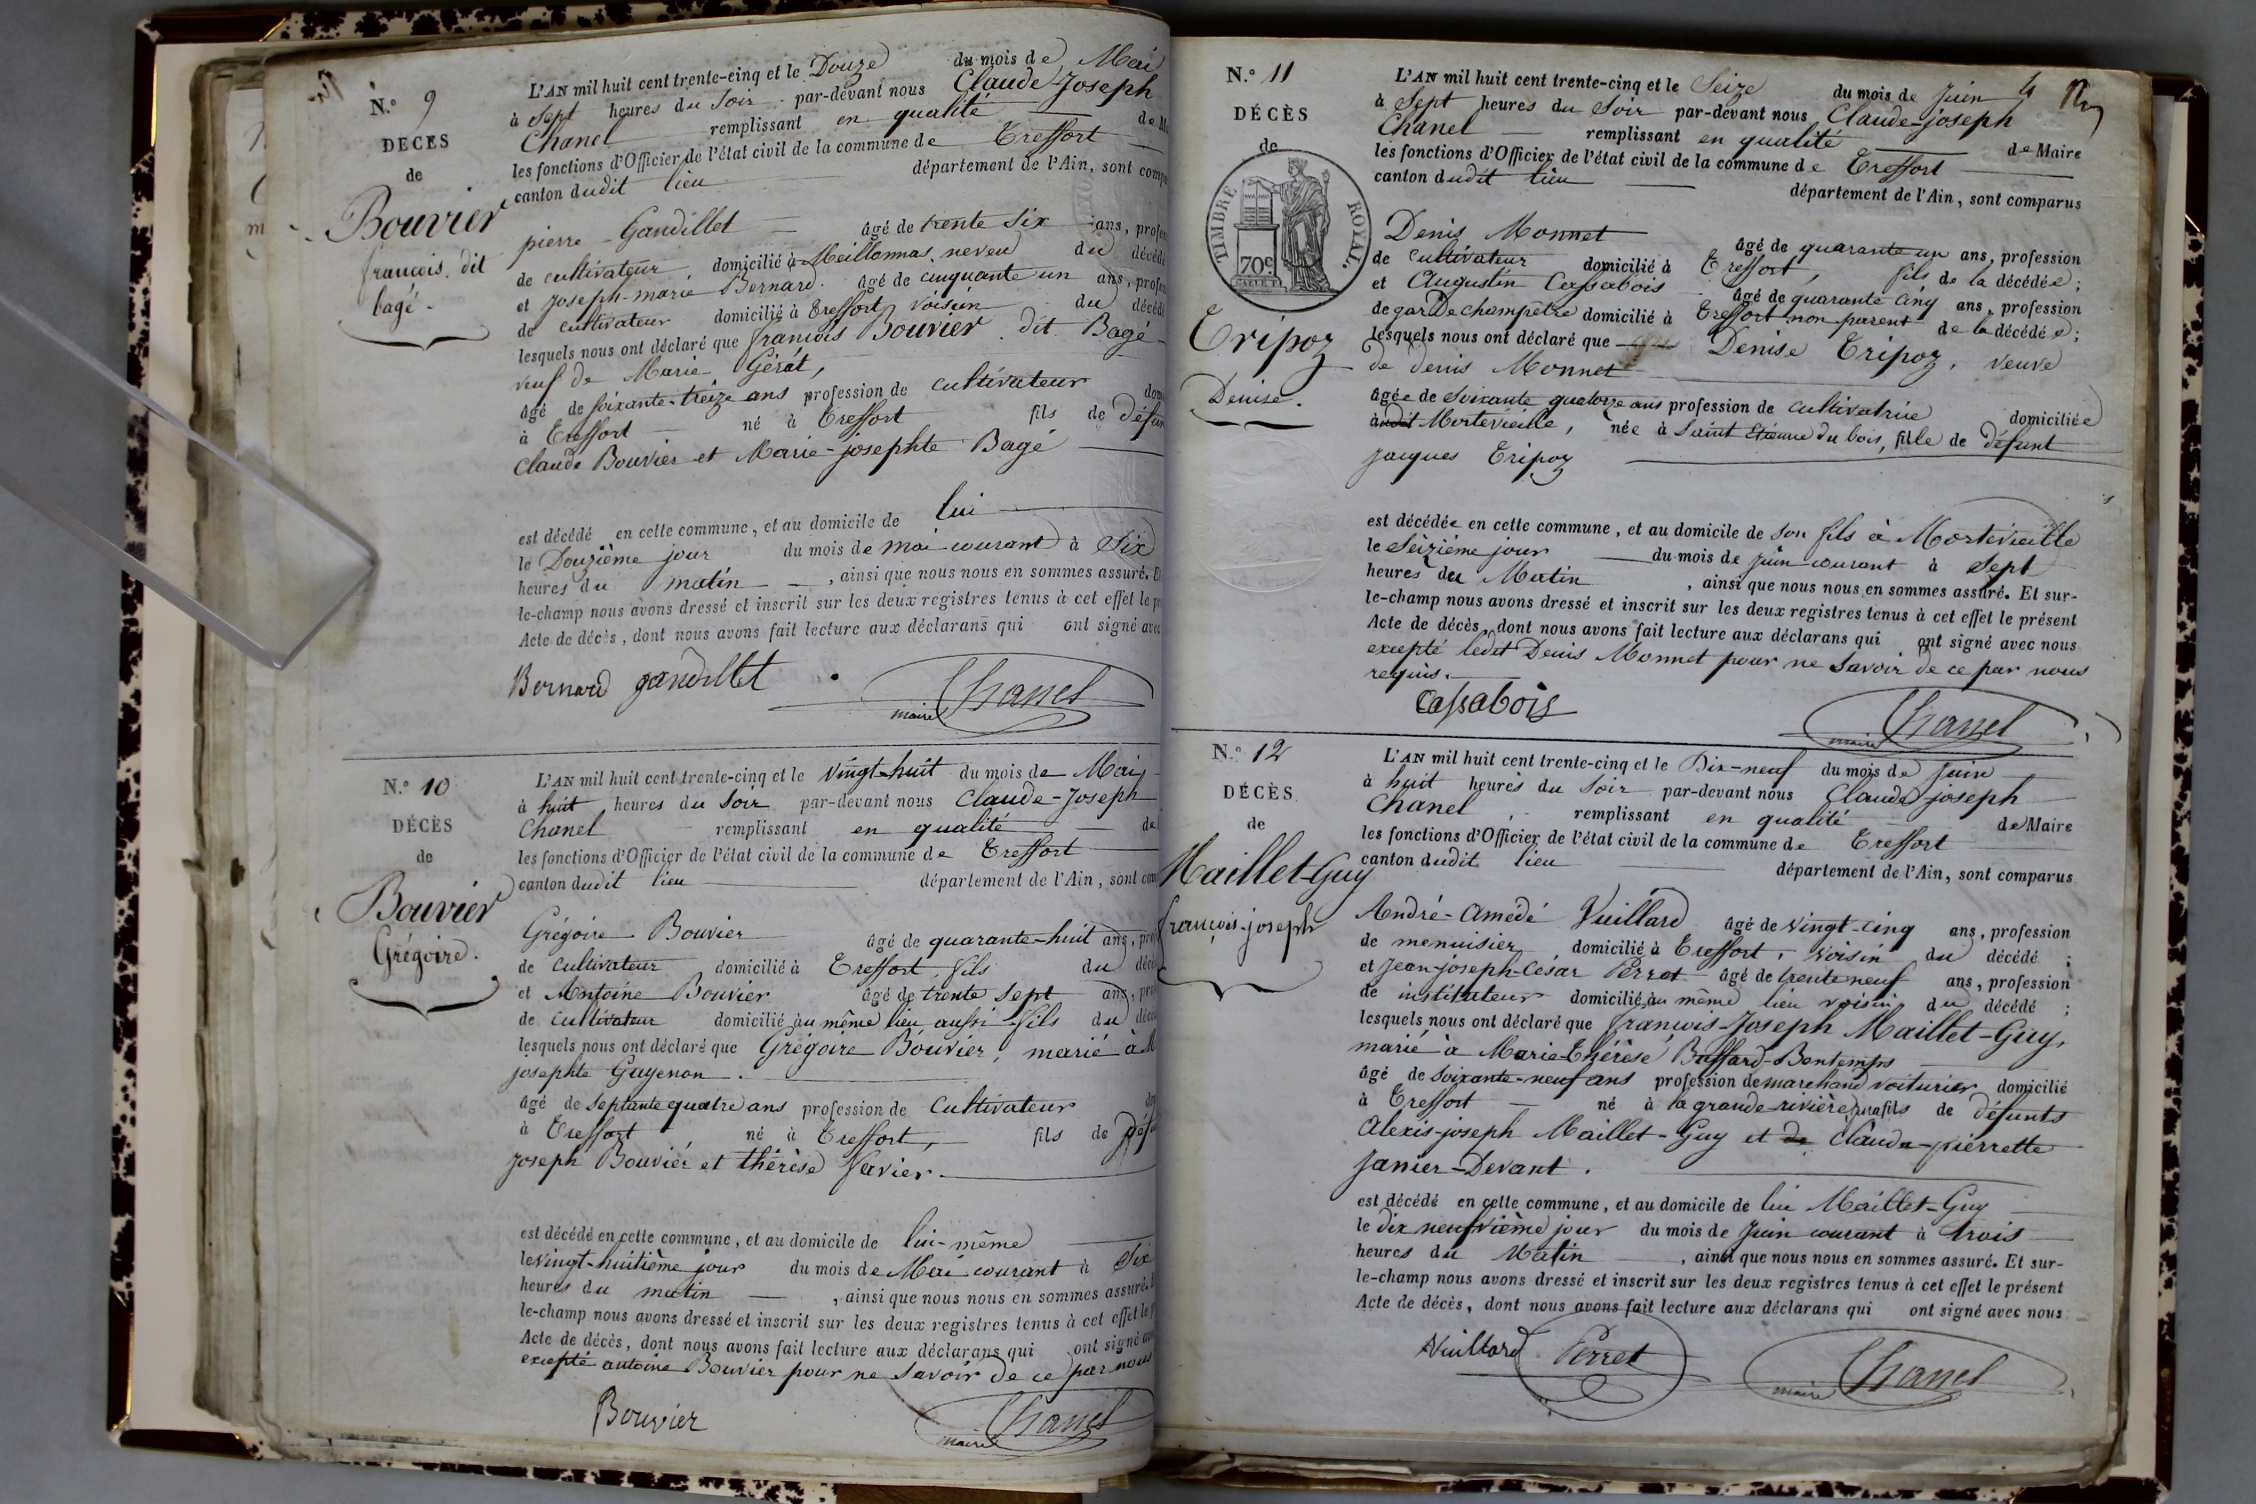 N.° 9
DÉCÈS
de
Bouvier
françois dit
bagé.
L'AN mil huit cent trente-cinq et le Douze du mois de Mai
à Sept heures du Soir par-devant nous Claude-Joseph
Chanel remplissant en qualité de
les fonctions d'Officier de l'état civil de la commune de Treffort
canton dudit lieu département de l'Ain, sont
pierre Gandillet âgé de trente six ans,
de cultivateur, domicilié à Meillonnas, neveu du décédé
et Joseph-marie Bernard âgé de cinquante un ans,
de cultivateur domicilié à Treffort, voisin du décédé
lesquels nous ont déclaré que françois Bouvier dit Bagé
veuf de Marie Gérat,
âgé de soixante-treize ans profession de cultivateur
à Treffort né à Treffort fils de
Claude Bouvier et Marie-josephte Bagé
est décédé en cette commune, et au domicile de lui
le Douzième jour du mois de mai courant à Six
heures du matin, ainsi que nous nous en sommes assuré.
le-champ nous avons dressé et inscrit sur les deux registres tenus à cet effet le
Acte de décès, dont nous avons fait lecture aux déclarans qui ont signé avec
Bernard gandillet
maire Chanel
N.° 10
DÉCÈS
de
Bouvier
Grégoire.
L'AN mil huit cent trente-cinq et le vingt-huit du mois de Mai,
à huit heures du Soir par-devant nous Claude-Joseph
Chanel remplissant en qualité de
les fonctions d'Officier de l'état civil de la commune de Treffort
canton dudit lieu département de l'Ain, sont
Grégoire Bouvier âgé de quarante-huit ans,
de cultivateur domicilié à Treffort, fils du
et Antoine Bouvier âgé de trente sept ans,
de cultivateur domicilié au même lieu aussi fils du
lesquels nous ont déclaré que Grégoire Bouvier, marié à
josephte Guyenon.
âgé de septante quatre ans profession de Cultivateur
à Treffort né à Treffort, fils de
Joseph Bouvier et thérèse
est décédé en cette commune, et au domicile de lui-même
le vingt-huitième jour du mois de Mai courant à Six
heures du matin, ainsi que nous nous en sommes assuré.
le-champ nous avons dressé et inscrit sur les deux registres tenus à cet effet le
Acte de décès, dont nous avons fait lecture aux déclarans qui ont signé
excepté antoine Bouvier pour ne Savoir de ce par nous
Bouvier
maire Chanel
N.° 11
DÉCÈS
de
TIMBRE ROYAL.
70c
Tripoz
Denise.
L'AN mil huit cent trente-cinq et le Seize du mois de juin
à Sept heures du Soir par-devant nous Claude-joseph
Chanel remplissant en qualité de Maire
les fonctions d'Officier de l'état civil de la commune de Treffort
canton dudit lieu département de l'Ain, sont comparus
Denis Monnet âgé de quarante un ans, profession
de cultivateur domicilié à Treffort, fils de la décédée;
et Augustin Cassabois âgé de quarante cinq ans, profession
de garde champêtre domicilié à Treffort non parent de la décédée;
lesquels nous ont déclaré que Denise Tripoz, veuve
de denis Monnet
âgée de soixante quatorze ans profession de cultivatrice domiciliée
audit Mortevieille, née à Saint Etienne du bois, fille de défunt
jacques Tripoz
est décédée en cette commune, et au domicile de son fils à Mortevieille
le Seizième jour du mois de juin courant à Sept
heures du Matin, ainsi que nous nous en sommes assuré. Et sur-
le-champ nous avons dressé et inscrit sur les deux registres tenus à cet effet le présent
Acte de décès, dont nous avons fait lecture aux déclarans qui ont signé avec nous
excepté ledit Denis Monnet pour ne Savoir de ce par nous
requis.
Cassabois
maire Chanel
N.° 12
DÉCÈS
de
Maillet-Guy
françois-joseph
L'AN mil huit cent trente-cinq et le Dix-neuf du mois de Juin
à huit heures du Soir par-devant nous Claude-joseph
Chanel, remplissant en qualité de Maire
les fonctions d'Officier de l'état civil de la commune de Treffort
canton dudit lieu département de l'Ain, sont comparus
André-Amédé Vuillard âgé de vingt-cinq ans, profession
de menuisier domicilié à Treffort, voisin du décédé;
et Jean-joseph-César Perret âgé de trente neuf ans, profession
de instituteur domicilié au même lieu voisin du décédé;
lesquels nous ont déclaré que françois-Joseph Maillet-Guy,
marié à Marie-thérèse Buffard-Bontemps
âgé de soixante-neuf ans profession de marchand voiturier domicilié
à Treffort né à la grande-rivière jura fils de défunts
Alexis-joseph Maillet-Guy et de Claude-pierrette
Janier-Devant.
est décédé en cette commune, et au domicile de lui Maillet-Guy
le dix neufvième jour du mois de juin courant à trois
heures du Matin, ainsi que nous nous en sommes assuré. Et sur-
le-champ nous avons dressé et inscrit sur les deux registres tenus à cet effet le présent
Acte de décès, dont nous avons fait lecture aux déclarans qui ont signé avec nous
Vuillard Perret
maire Chanel